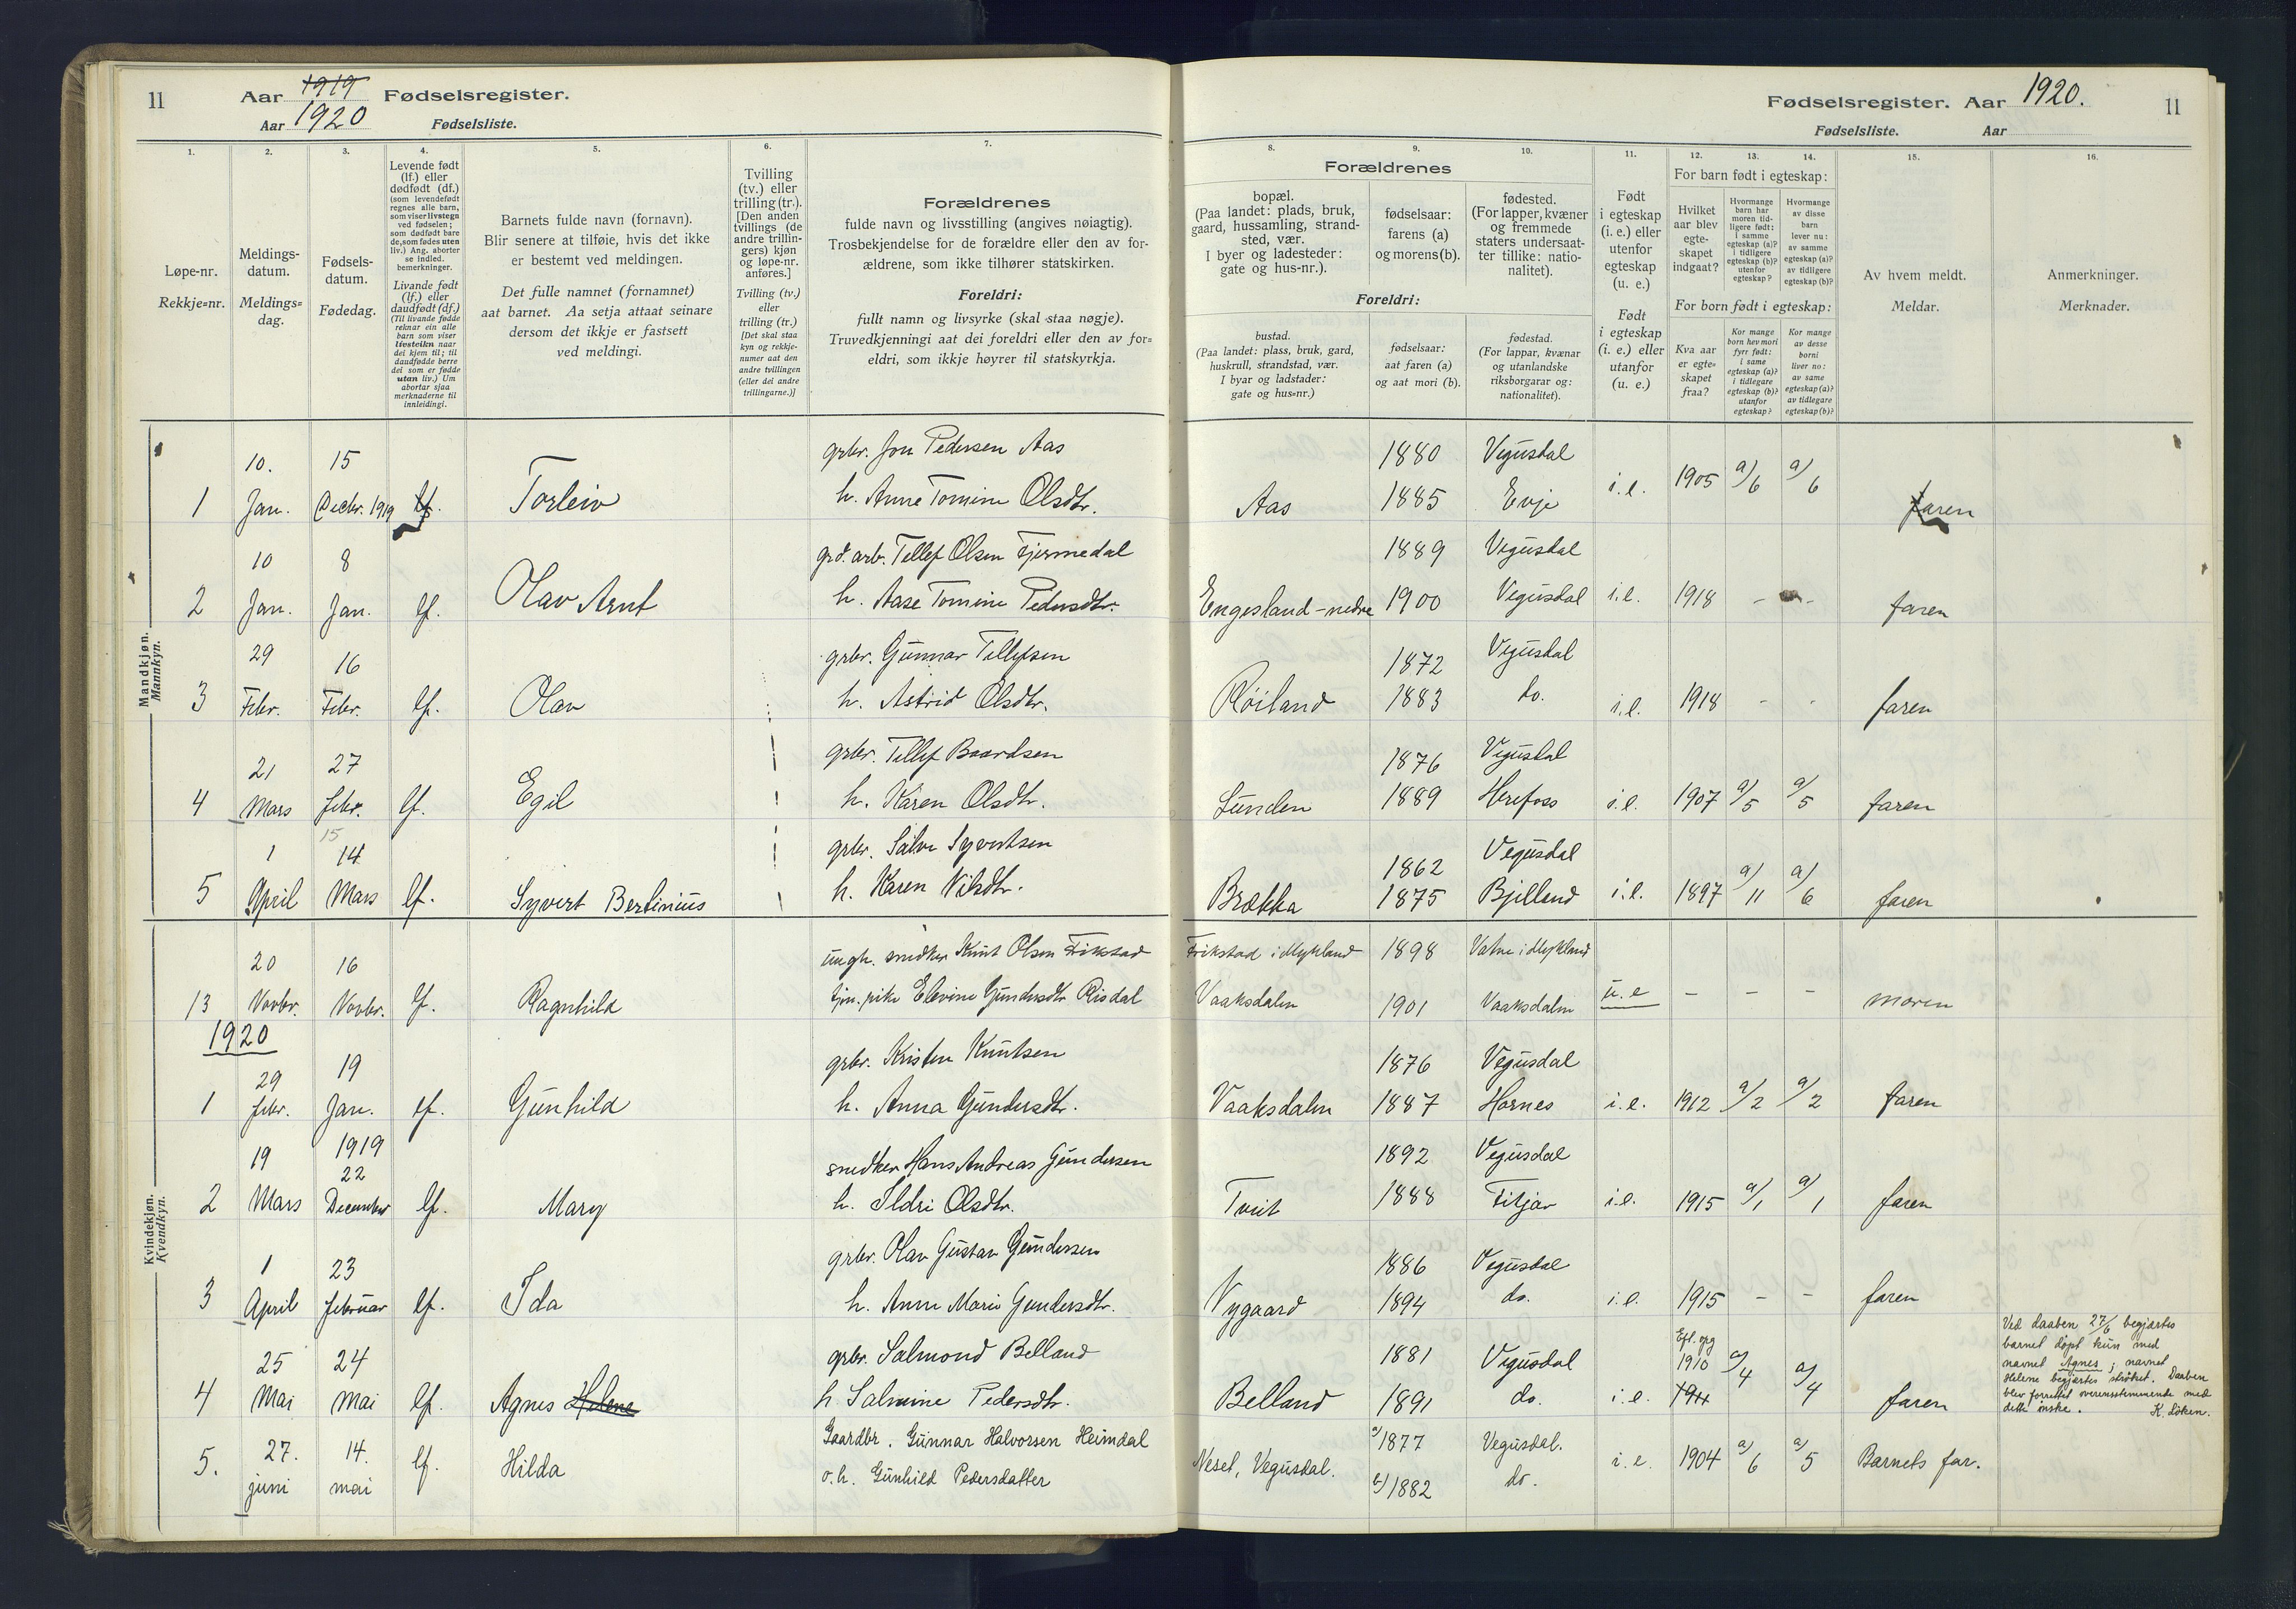 11 Aar 1919 Fødselsregister.
Aar 1920 Fødselsliste.
Fødselsregister. Aar 1920. 11
Fødselsliste. Aar
1. 2. 3. 4. 5. 6. 7.
Løpe-nr.
Rekkje-nr.
Meldings-
datum.
Meldings-
dag.
Fødsels-
datum.
Fødedag.
Levende født
(lf.) eller
dødfødt (df.)
(som levendefødt
regnes alle barn,
som viser livstegn
ved fødselen;
som dødfødt bare
de, som fødes uten
liv.) Ang. aborter
se indled.
bemerkninger.
Livande født
(lf.) eller
daudfødt (df.)
(Til livande fødde
reknar ein alle
barn som viser
livsteikn naar
dei kjem til; til
daudfødde berre
dei som er fødde
utan liv.) Um
abortar sjaa
merknaderne til
innleidingi.
Barnets fulde navn (fornavn).
Blir senere at tilføie, hvis det ikke
er bestemt ved meldingen.
Det fulle namnet (fornamnet)
aat barnet. Aa setja attaat seinare
dersom det ikkje er fastsett
ved meldingi.
Tvilling
(tv.) eller
trilling (tr.).
[Den anden
tvillings (de
andre trillin-
gers) kjøn
og løpe-nr.
anføres.]
Tvilling (tv.)
eller
trilling (tr.)
[Det skal staa
kyn og rekkje-
numer aat den
andre tvillingen
(eller dei andre
trillingarne.)]
Forældrenes
fulde navn og livsstilling (angives nøiagtig).
Trosbekjendelse for de forældre eller den av for-
ældrene, som ikke tilhører statskirken.
Foreldri:
fullt namn og livsyrke (skal staa nøgje).
Truvedkjenningi aat dei foreldri eller den av for-
eldri, som ikkje høyrer til statskyrkja.
8. 9. 10. 11. 12. 13. 14. 15. 16.
Forældrenes
bopæl.
(Paa landet: plads, bruk,
gaard, hussamling, strand-
sted, vær.
I byer og ladesteder:
gate og hus-nr.).
fødselsaar:
farens (a)
og morens (b).
fødested.
(For lapper, kvæner
og fremmede
staters undersaat-
ter tillike: natio-
nalitet).
Foreldri:
bustad.
(Paa landet: plass, bruk, gard,
huskrull, strandstad, vær.
I byar og ladstader:
gate og hus-nr.)
fødselsaar:
aat faren (a)
og aat mori (b).
fødestad.
(For lappar, kvænar
og utanlandske
riksborgarar og:
nationalitet).
Født
i egteskap
(i. e.) eller
utenfor
egteskap
(u. e.)
Født
i egteskap
(i. e.) eller
utanfor
(u. e.)
For barn født i egteskap:
Hvilket
aar blev
egte-
skapet
indgaat?
Hvormange
barn har
moren tid-
ligere født:
i samme
egteskap (a)?
i tidligere
egteskap (b)?
utenfor
egteskap?
Hvormange
av disse
barn
lever nu:
av samme
egteskap (a)?
av tidligere
egteskap (b)?
For born født i egteskap:
Kva aar
er egte-
skapet
fraa?
Kor mange
born hev mori
fyrr født:
i same
egteskap (a)?
i tidlegare
egteskap (b)?
utanfor
egteskap?
Kor mange
av desse
borni
liver no:
av same
egteskap (a)?
av tidlegare
egteskap (b)?
Av hvem meldt.
Meldar.
Anmerkninger.
Merknader.
Mandkjøn.
Mannkyn.
10. 15 grbr. Jon Pedersen Aas 1880 Vegusdal
1 Jan. Decbr. 1919 lf. Torleiv h. Anne Tomine Olsdtr. Aas 1885 Evje i.e. 1905 a/6 a/6 faren
10 8 grd. arb. Tellef Olsen Fjermedal 1889 Vegusdal
2 Jan. Jan. lf. Olav Arnt h. Aase Tomine Pedersdtr. Engesland-nedre 1900 Vegusdal i.e. 1918 - - faren
29 16 grbr. Gunnar Tellefsen 1872 Vegusdal
3 Febr. Febr. lf. Olav h. Astrid Olsdtr. Røiland 1883 do. i.e. 1918 - - faren
21 27 grbr. Tellef Baardsen 1876 Vegusdal
4 Mars febr. lf. Egil h. Karen Olsdtr. Lunden 1889 Herefoss i.e. 1907 a/5 a/5 faren
15
1 14 grbr. Salve Syvertsen 1862 Vegusdal
5 April Mars lf. Syvert Bertinius h. Karen Nilsdtr. Brække 1875 Bjelland i.e. 1897 a/11 a/6 faren
Kvindekjøn.
Kvendkyn.
20 16 ungk. snedker Knut Olsen Frikstad Frikstad i Mykland 1898 Vatne i Mykland
13 Novbr. Novbr. lf. Ragnhild tjen. pike Elevine Gundersdtr Risdal Vaaksdalen 1901 Vaaksdalen u.e - - - moren
1920
29 19 grbr. Kristen Knutsen 1876 Vegusdal
1 febr. Jan. lf. Gunhild h. Anna Gundersdtr. Vaaksdalen 1887 Hornes i.e. 1912 a/2 a/2 faren
19 1919 22 snedker Hans Andreas Gundersen 1892 Vegusdal
2 Mars December lf. Mary h. Ildri Olsdtr. Tveit 1888 Fitjar i.e. 1915 a/1 a/1 faren
1 23 grbr. Olav Gustav Gundersen 1886 Vegusdal
3 April februar lf. Ida h. Anne Marie Gundersdtr. Nygaard 1894 do. i.e. 1915 - - faren
25 24 grbr. Salmond Belland 1881 Vegusdal Efl. opg 1910 a/4 a/4
4 Mai Mai lf. Agnes Helene h. Salmine Pedersdtr. Belland 1891 do. i.e. 1911 faren
Ved daaben 27/6 begjærtes
barnet døpt kun med
navnet Agnes; navnet
Helene begjærtes strøket. Daaben
blev forrettet overensstemmende med
dette ønske. K. Løken.
27. 14. Gaardbr. Gunnar Halvorsen Heimdal a/1877 Vegusdal.
5. juni mai lf. Hilda o.h. Gunhild Pedersdatter Neset, Vegusdal. b/1882 do. i.e. 1904 a/6 a/5 Barnets far.